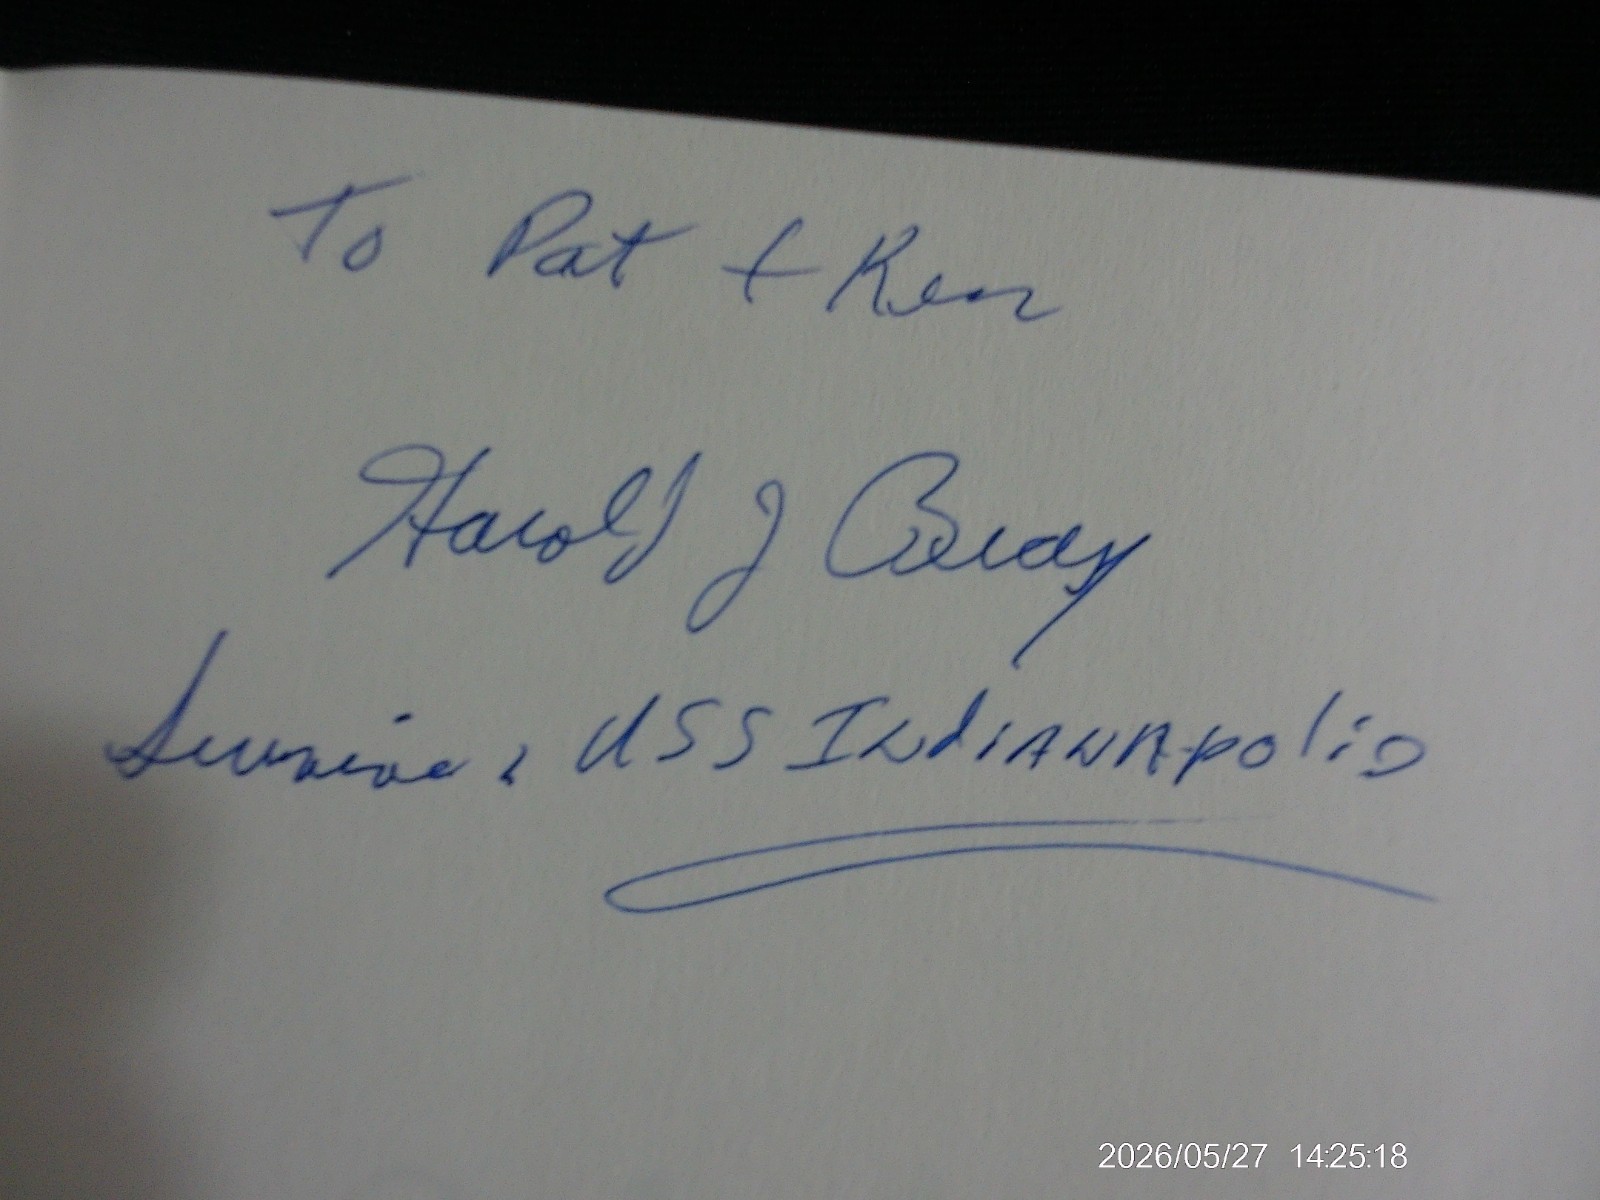 To Pat + Ken
Harold J Bray
Survivor, USS INdiANApolis
2026/05/27 14:25:18